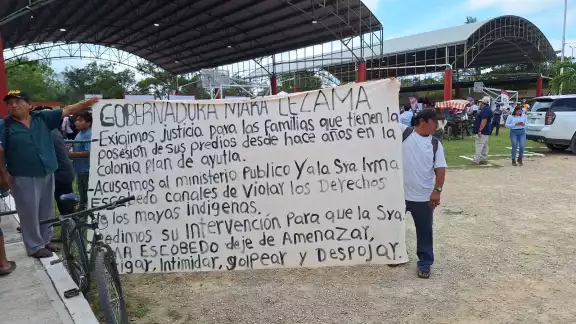 GOBERNADORA MARA LEZAMA
-Exigimos justicia para las familias que tienen la
posesión de sus predios desde hace años en la
colonia plan de ayutla.
-Acusamos al ministerio Publico Y a la Sra Irma
Escobedo canales de Violar los Derechos
de los mayas Indigenas.
Pedimos su Intervención Para que la Sra.
IRMA ESCOBEDO deje de Amenazar,
Intimidar, golpear y Despojar